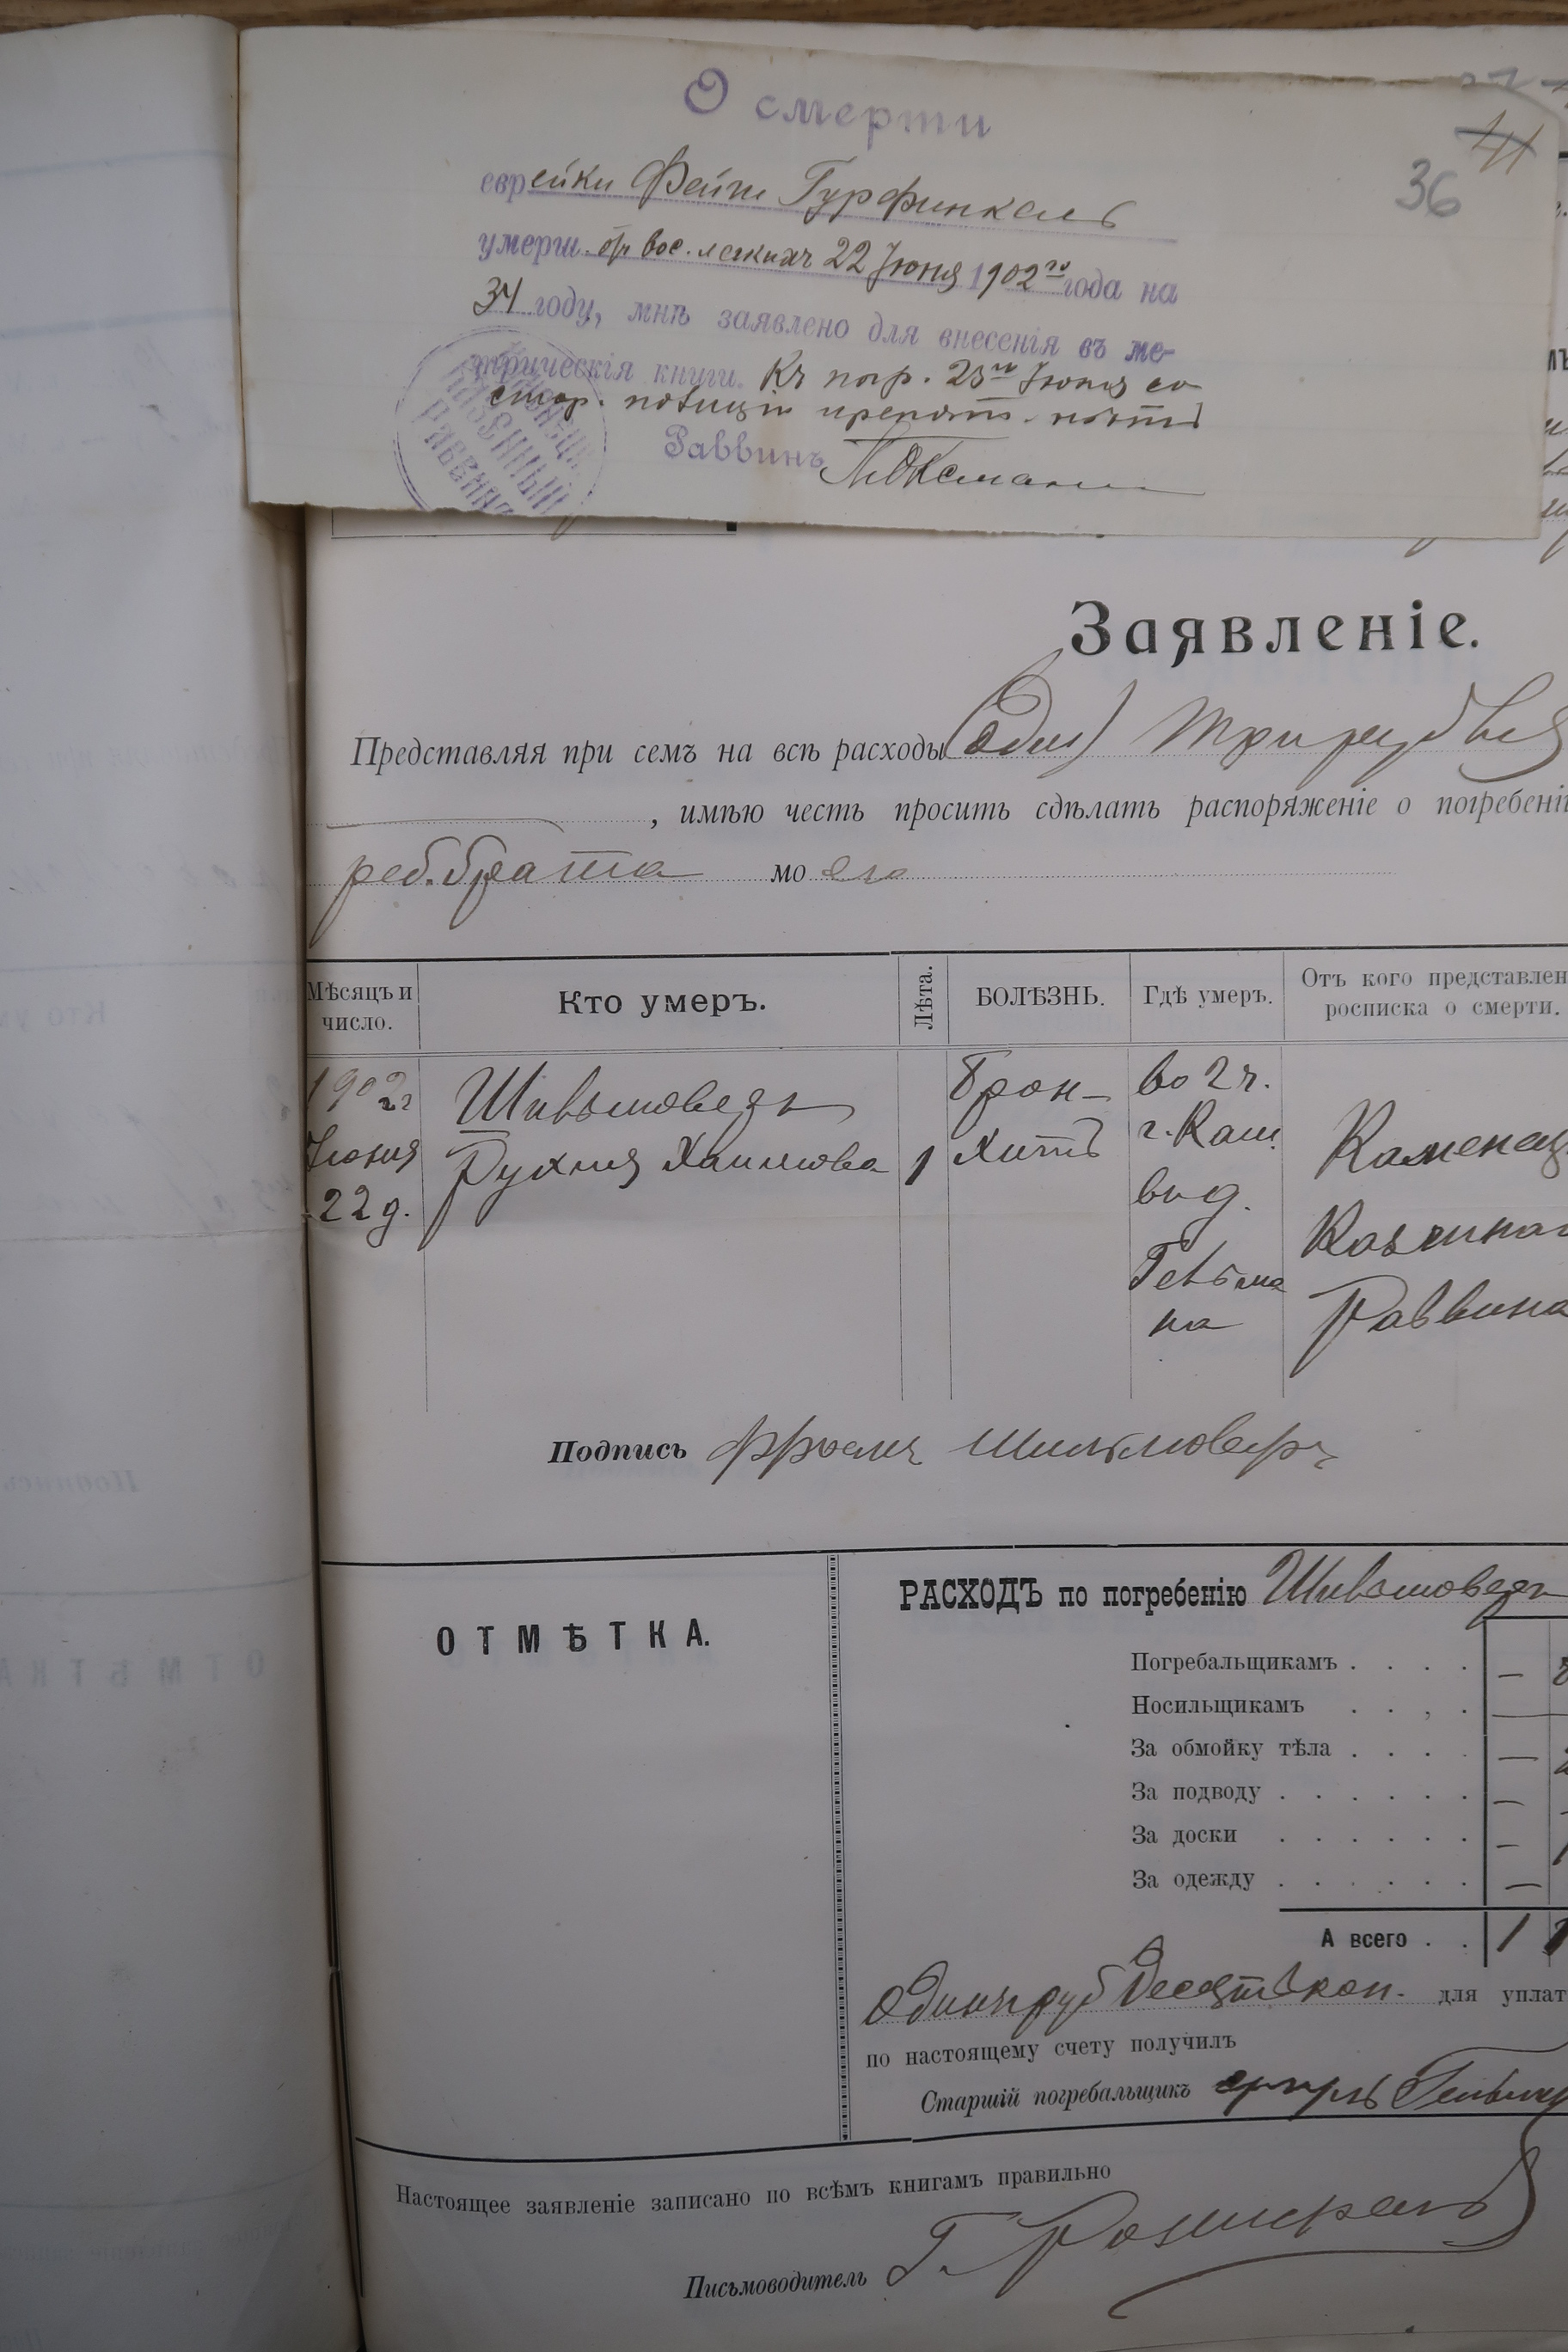 О смерти
36
41
еврейки Фейги Гурфинкель
умерш. отъ вос. легкихъ 22 Іюня 1902го года на
34 году, мнѣ заявлено для внесенія въ ме-
трическія книги. Къ погр. 23го Іюня со
стор. полиціи препятст. нѣтъ
Раввинъ
КАЗЕННЫЙ
РАВВИНЪ
Заявленіе.
Представляя при семъ на всѣ расходы (один) три рубля
, имѣю честь просить сдѣлать распоряженіе о погребені
реб. брата моего
Мѣсяцъ и число.
Кто умеръ.
Лѣта.
БОЛѢЗНЬ.
Гдѣ умеръ.
Отъ кого представлен
росписка о смерти.
1902г
Іюня
22 д.
Рухля Хаимова
1
Брон-
хитъ
во 2 ч.
г. Кам.
въ д.
Гельма
на
Каменец
Казеннаг
Раввина
Подпись Фроимъ
ОТМѢТКА.
РАСХОДЪ по погребенію
Погребальщикамъ . . . . —
Носильщикамъ . . , .
За обмойку тѣла . . . . —
За подводу . . . . . —
За доски . . . . . —
За одежду . . . . . —
А всего . . 1 1
Одинъ руб десять коп. для уплат
по настоящему счету получилъ
Старшій погребальщикъ
Настоящее заявленіе записано по всѣмъ книгамъ правильно
Письмоводитель Г.